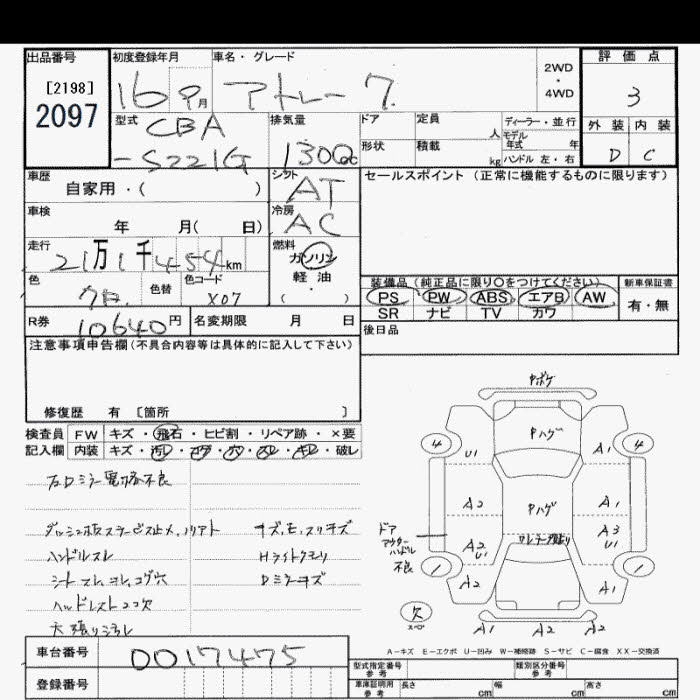 出品番号 初度登録年月 車名・グレード 評価点
[2198]
2097
16 9月 アトレー 7 2WD・4WD 3
型式 CBA-S221G 排気量 1300cc ドア 定員 人 ディーラー・並行
形状 積載 kg モデル年式 年 ハンドル 左・右
外装 内装
D C
車歴 自家用・( ) シフト AT セールスポイント (正常に機能するものに限ります)
車検 年 月( 日) 冷房 AC
走行 21万1千454km 燃料 ガソリン 軽油 ( ・ )
色 クロ 色替 色コード X07
装備品 (純正品に限り〇をつけてください) 新車保証書
PS PW ABS エアB AW 有・無
SR ナビ TV カワ
R券 10640円 名変期限 月 日 後日品
注意事項申告欄(不具合内容等は具体的に記入して下さい)
修復歴 有 [箇所 ]
検査員 FW キズ・飛石・ヒビ割・リペア跡・×要
記入欄 内装 キズ・汚レ・コゲ・穴・スレ・キレ・破レ
左Dミラー電格不良
ハンドルスレ Hライトクモリ
シートスレ、ヨレ、コゲ穴 Dミラーキズ
ヘッドレスト1コ欠
天張りヨゴレ
Pボケ
Pハゲ
4 U1 A1 4
A2 Pハゲ A1
ドアアウターハンドル不良 A2 U1 A3 U1
1 A2 A1 1
欠 スペア A1 A2 A2
A-キズ E-エクボ U-凹み W-補修跡 S-サビ C-腐食 XX-交換済
車台番号 0017475
登録番号
型式指定番号 参考 類別区分番号 参考
車庫証明用 参考 長さ cm 幅 cm 高さ cm